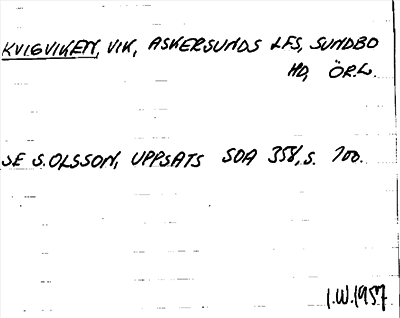 KVIGVIKEN, VIK, ASKERSUNDS LFS, SUNDBO
HD, ÖR.L.
SE S. OLSSON, UPPSATS SOA 358, S. 100.
I.W. 1957